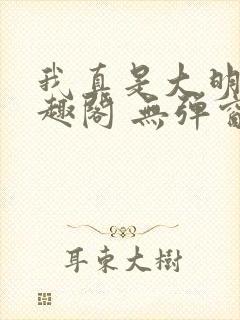 我真是大明
趣阁 無彈窗
耳東大樹